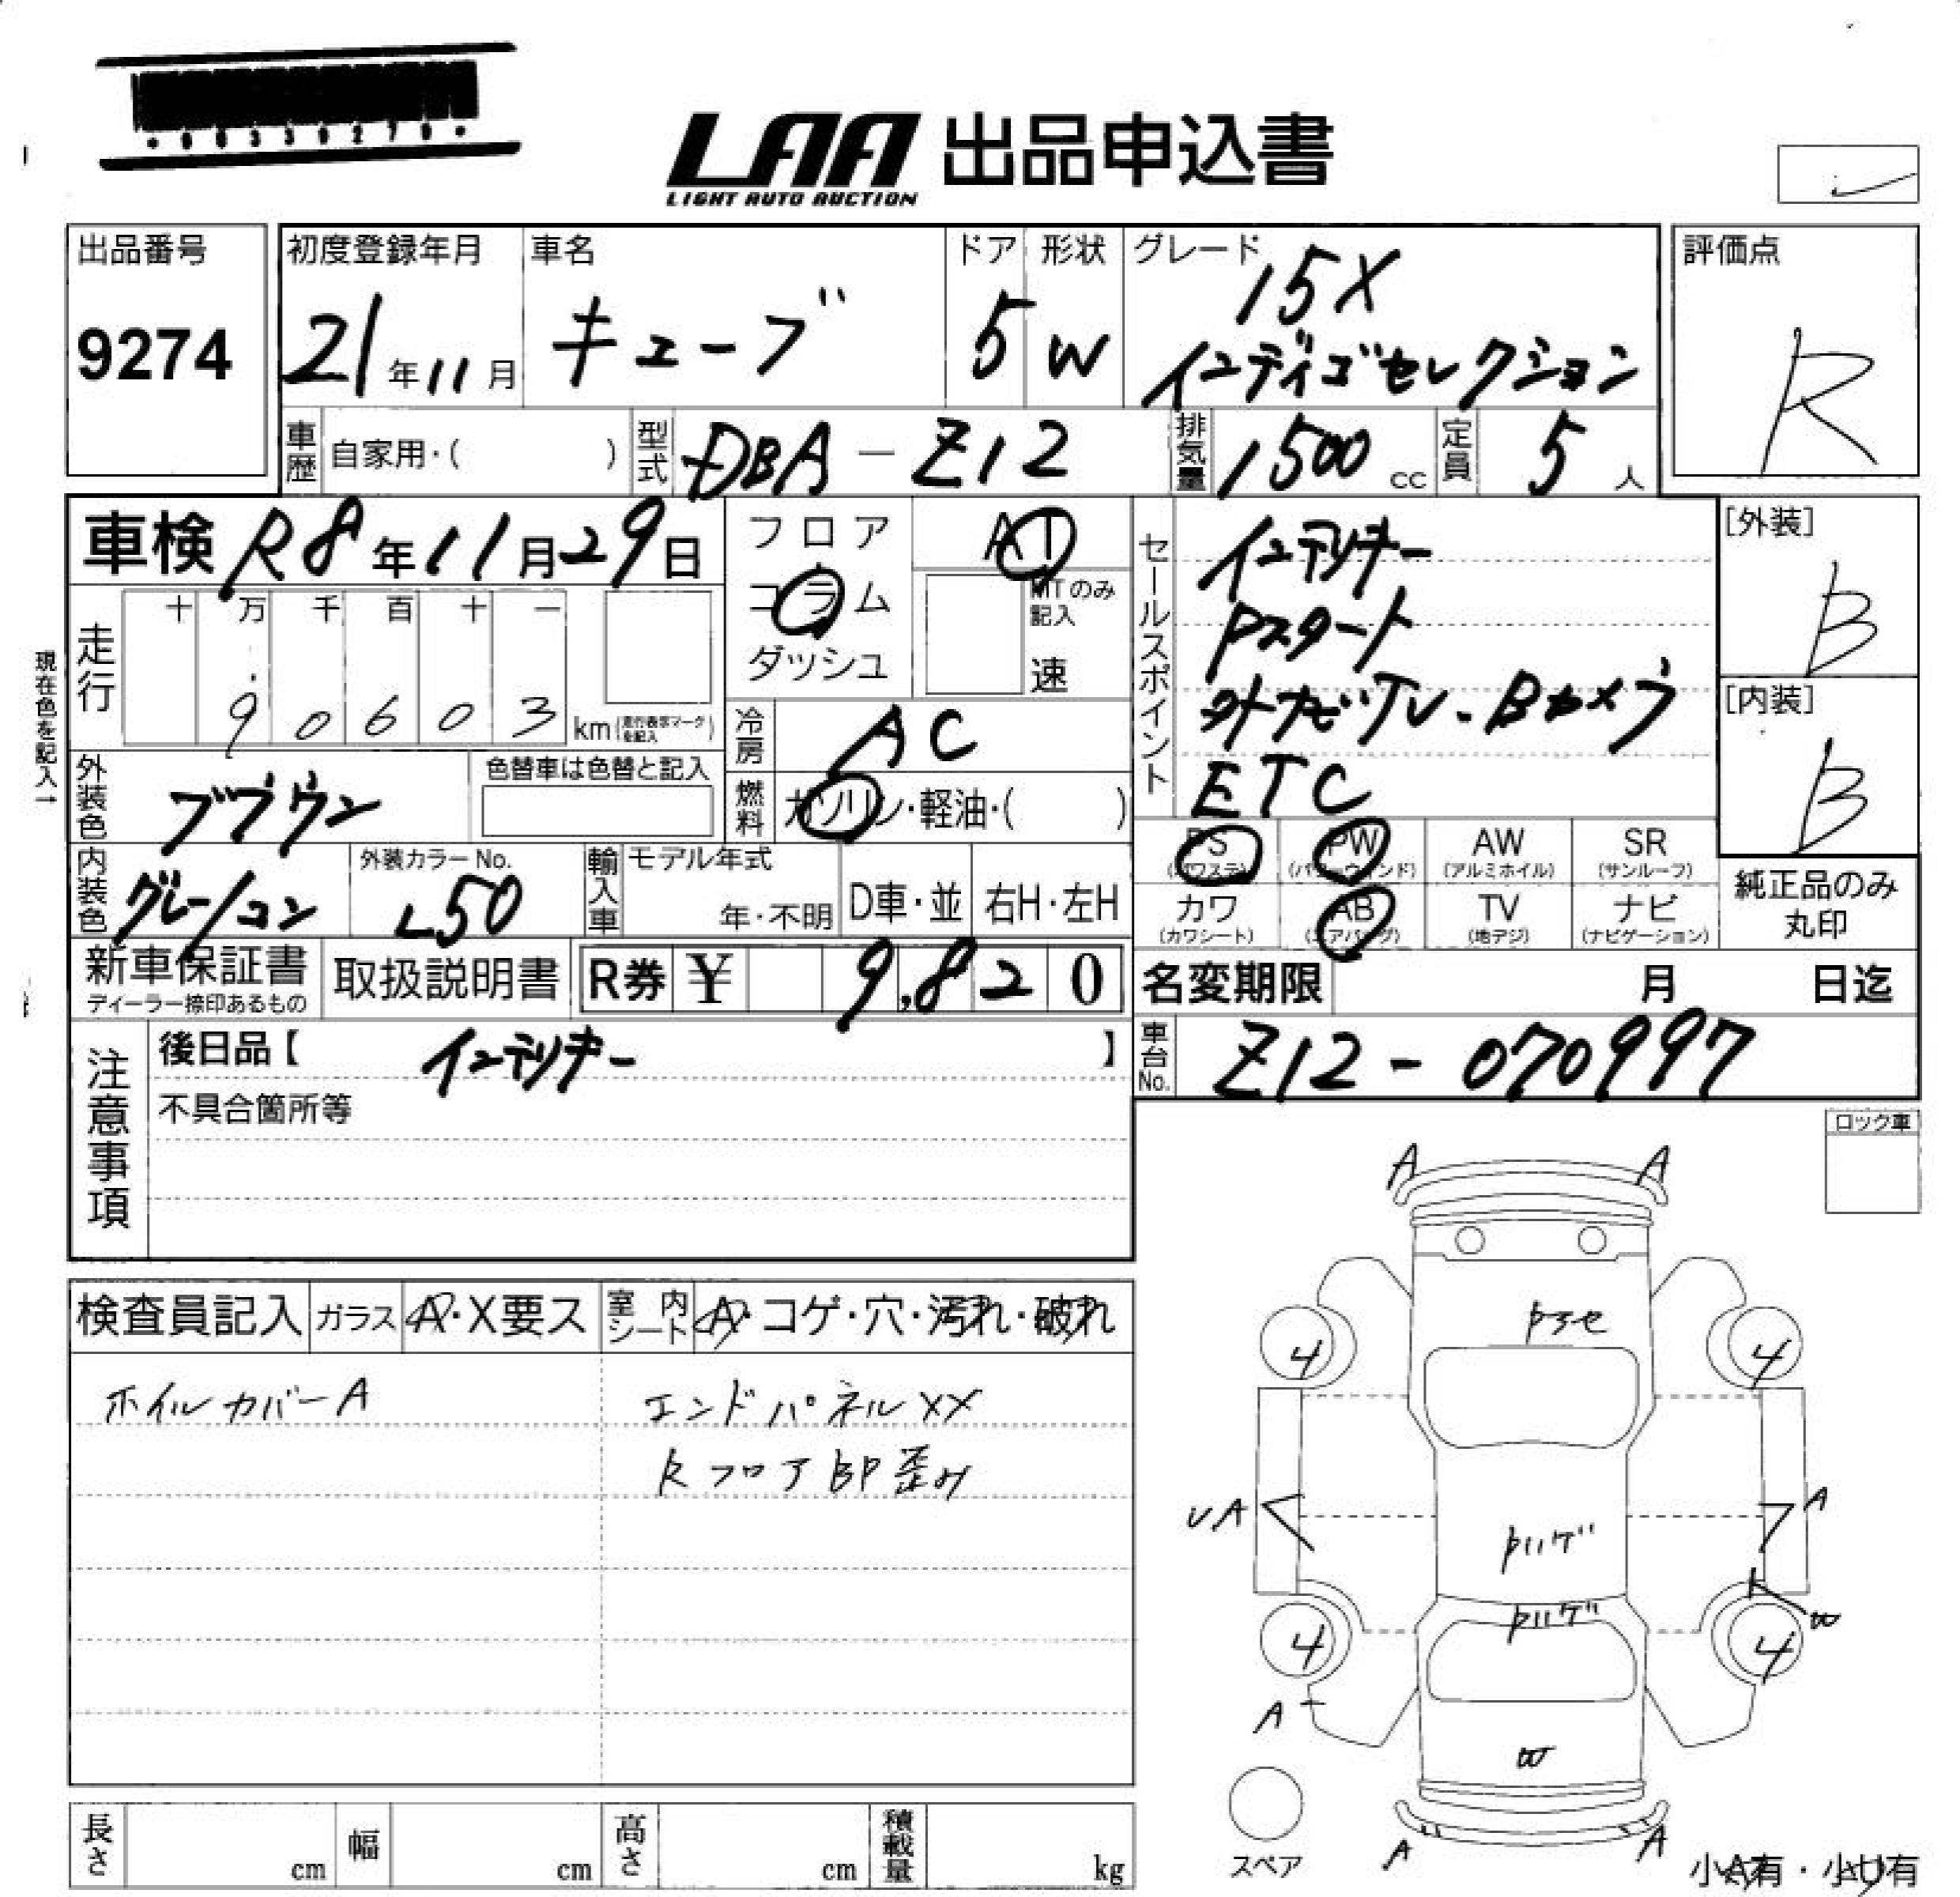 LAA 出品申込書
LIGHT AUTO AUCTION
出品番号
9274
初度登録年月
21年11月
車名
キューブ
ドア
5
形状
W
グレード
15X
インディゴセレクション
評価点
R
車歴 自家用・( )
型式 DBA-Z12
排気量 1500cc
定員 5人
車検 R8年11月29日
フロア
コラム
ダッシュ
AT
MTのみ記入
速
セールスポイント
インテリキー
Pスタート
外ナビTV・Bカメラ
ETC
[外装]
B
[内装]
B
現在色を記入→
走行
十 万 千 百 十 一
9 0 6 0 3 km(走行表示マークを記入)
冷房 AC
燃料 ガソリン・軽油・( )
外装色 ブラウン
色替車は色替と記入
内装色 グレー/コン
外装カラーNo.
L50
輸入車 モデル年式
年・不明
D車・並
右H・左H
PS (パワステ)
PW (パワーウィンド)
AW (アルミホイル)
SR (サンルーフ)
カワ (カワシート)
AB (エアバッグ)
TV (地デジ)
ナビ (ナビゲーション)
純正品のみ
丸印
新車保証書
ディーラー捺印あるもの
取扱説明書
R券 ¥ 9,820
名変期限 月 日迄
車台No. Z12-070997
注意事項
後日品【 インテリキー 】
不具合箇所等
ロック車
検査員記入 ガラス A・X要ス
室内シート A・コゲ・穴・汚れ・破れ
ホイルカバーA
エンドパネルXX
RフロアBP歪み
A A
トアセ
4 4
UA
A
トハゲ
トハゲ
4 4
W
A
W
A A
スペア
小A有・小U有
長さ cm
幅 cm
高さ cm
積載量 kg